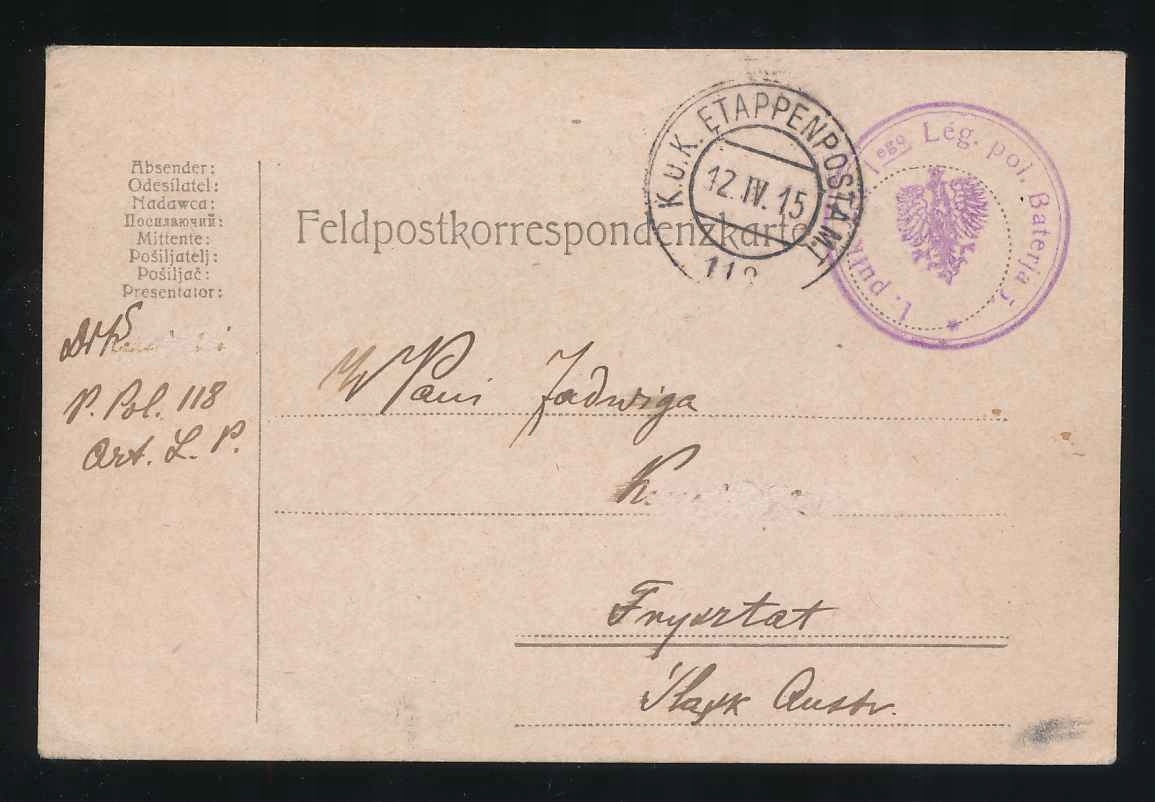 Absender:
Odesílatel:
Nadawca:
Посилаючий:
Mittente:
Pošiljatelj:
Pošiljač:
Presentator:
Feldpostkorrespondenzkarte
K.u.K. ETAPPENPOSTAMT
12.IV.15
Lég. pol. Baterja
Dr K
P. Pol. 118
Art. L. P.
W Pani Jadwiga
K
Frysztat
Śląsk Austr.